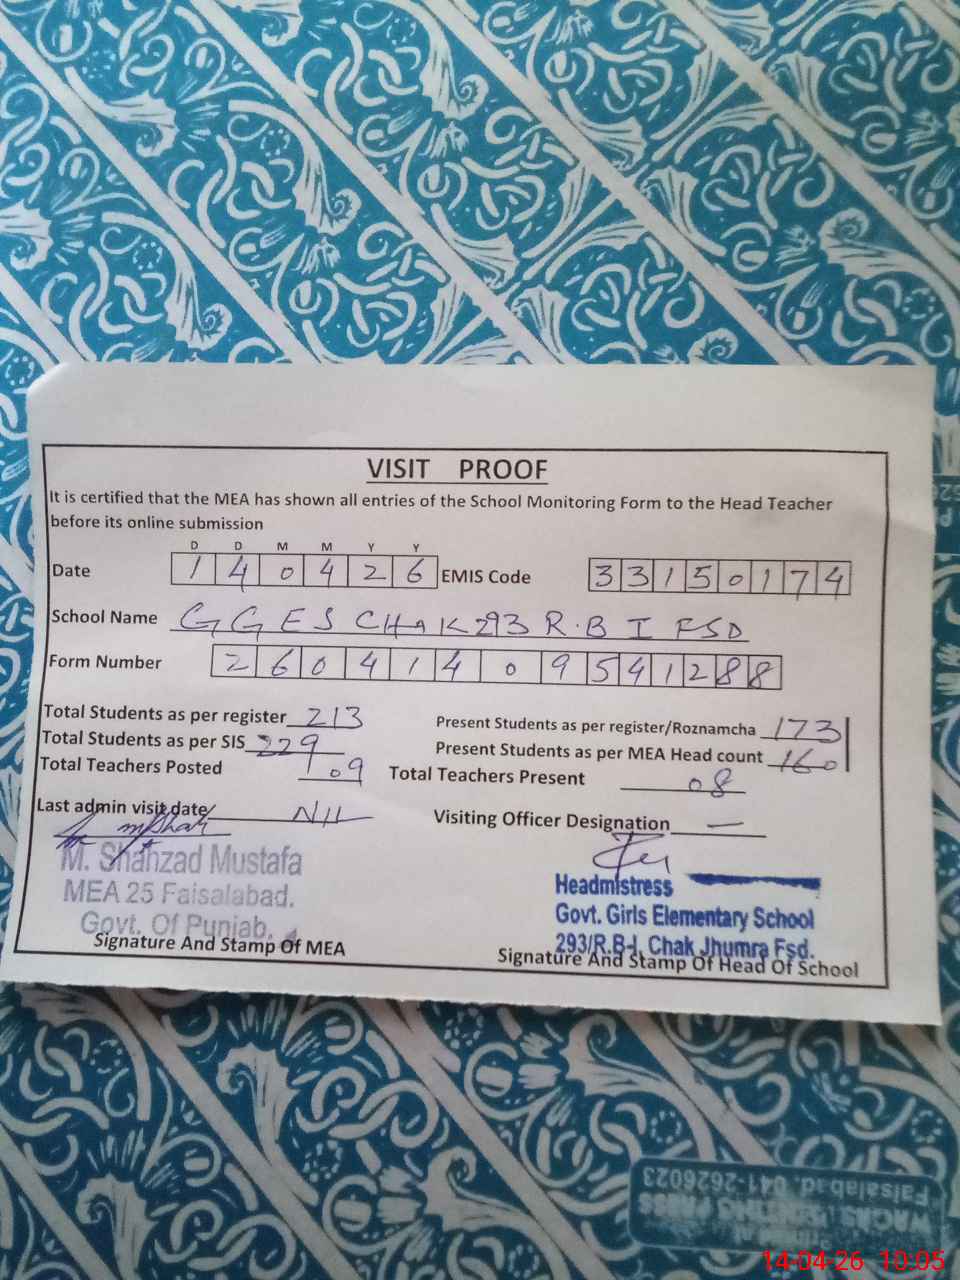 VISIT PROOF
It is certified that the MEA has shown all entries of the School Monitoring Form to the Head Teacher
before its online submission
D D M M Y Y
Date 1 4 0 4 2 6 EMIS Code 3 3 1 5 0 1 7 4
School Name GGES CHAK 293 R.B I FSD
Form Number 2 6 0 4 1 4 0 9 5 4 1 2 8 8
Total Students as per register 213 Present Students as per register/Roznamcha 173
Total Students as per SIS 229 Present Students as per MEA Head count 160
Total Teachers Posted 09 Total Teachers Present 08
Last admin visit date Nil Visiting Officer Designation —
M. Shahzad Mustafa
MEA 25 Faisalabad.
Govt. Of Punjab.
Signature And Stamp Of MEA
Headmistress
Govt. Girls Elementary School
293/R.B-I, Chak Jhumra Fsd.
Signature And Stamp Of Head Of School
Faisalabad. 041-2626023
14-04-26 10:05